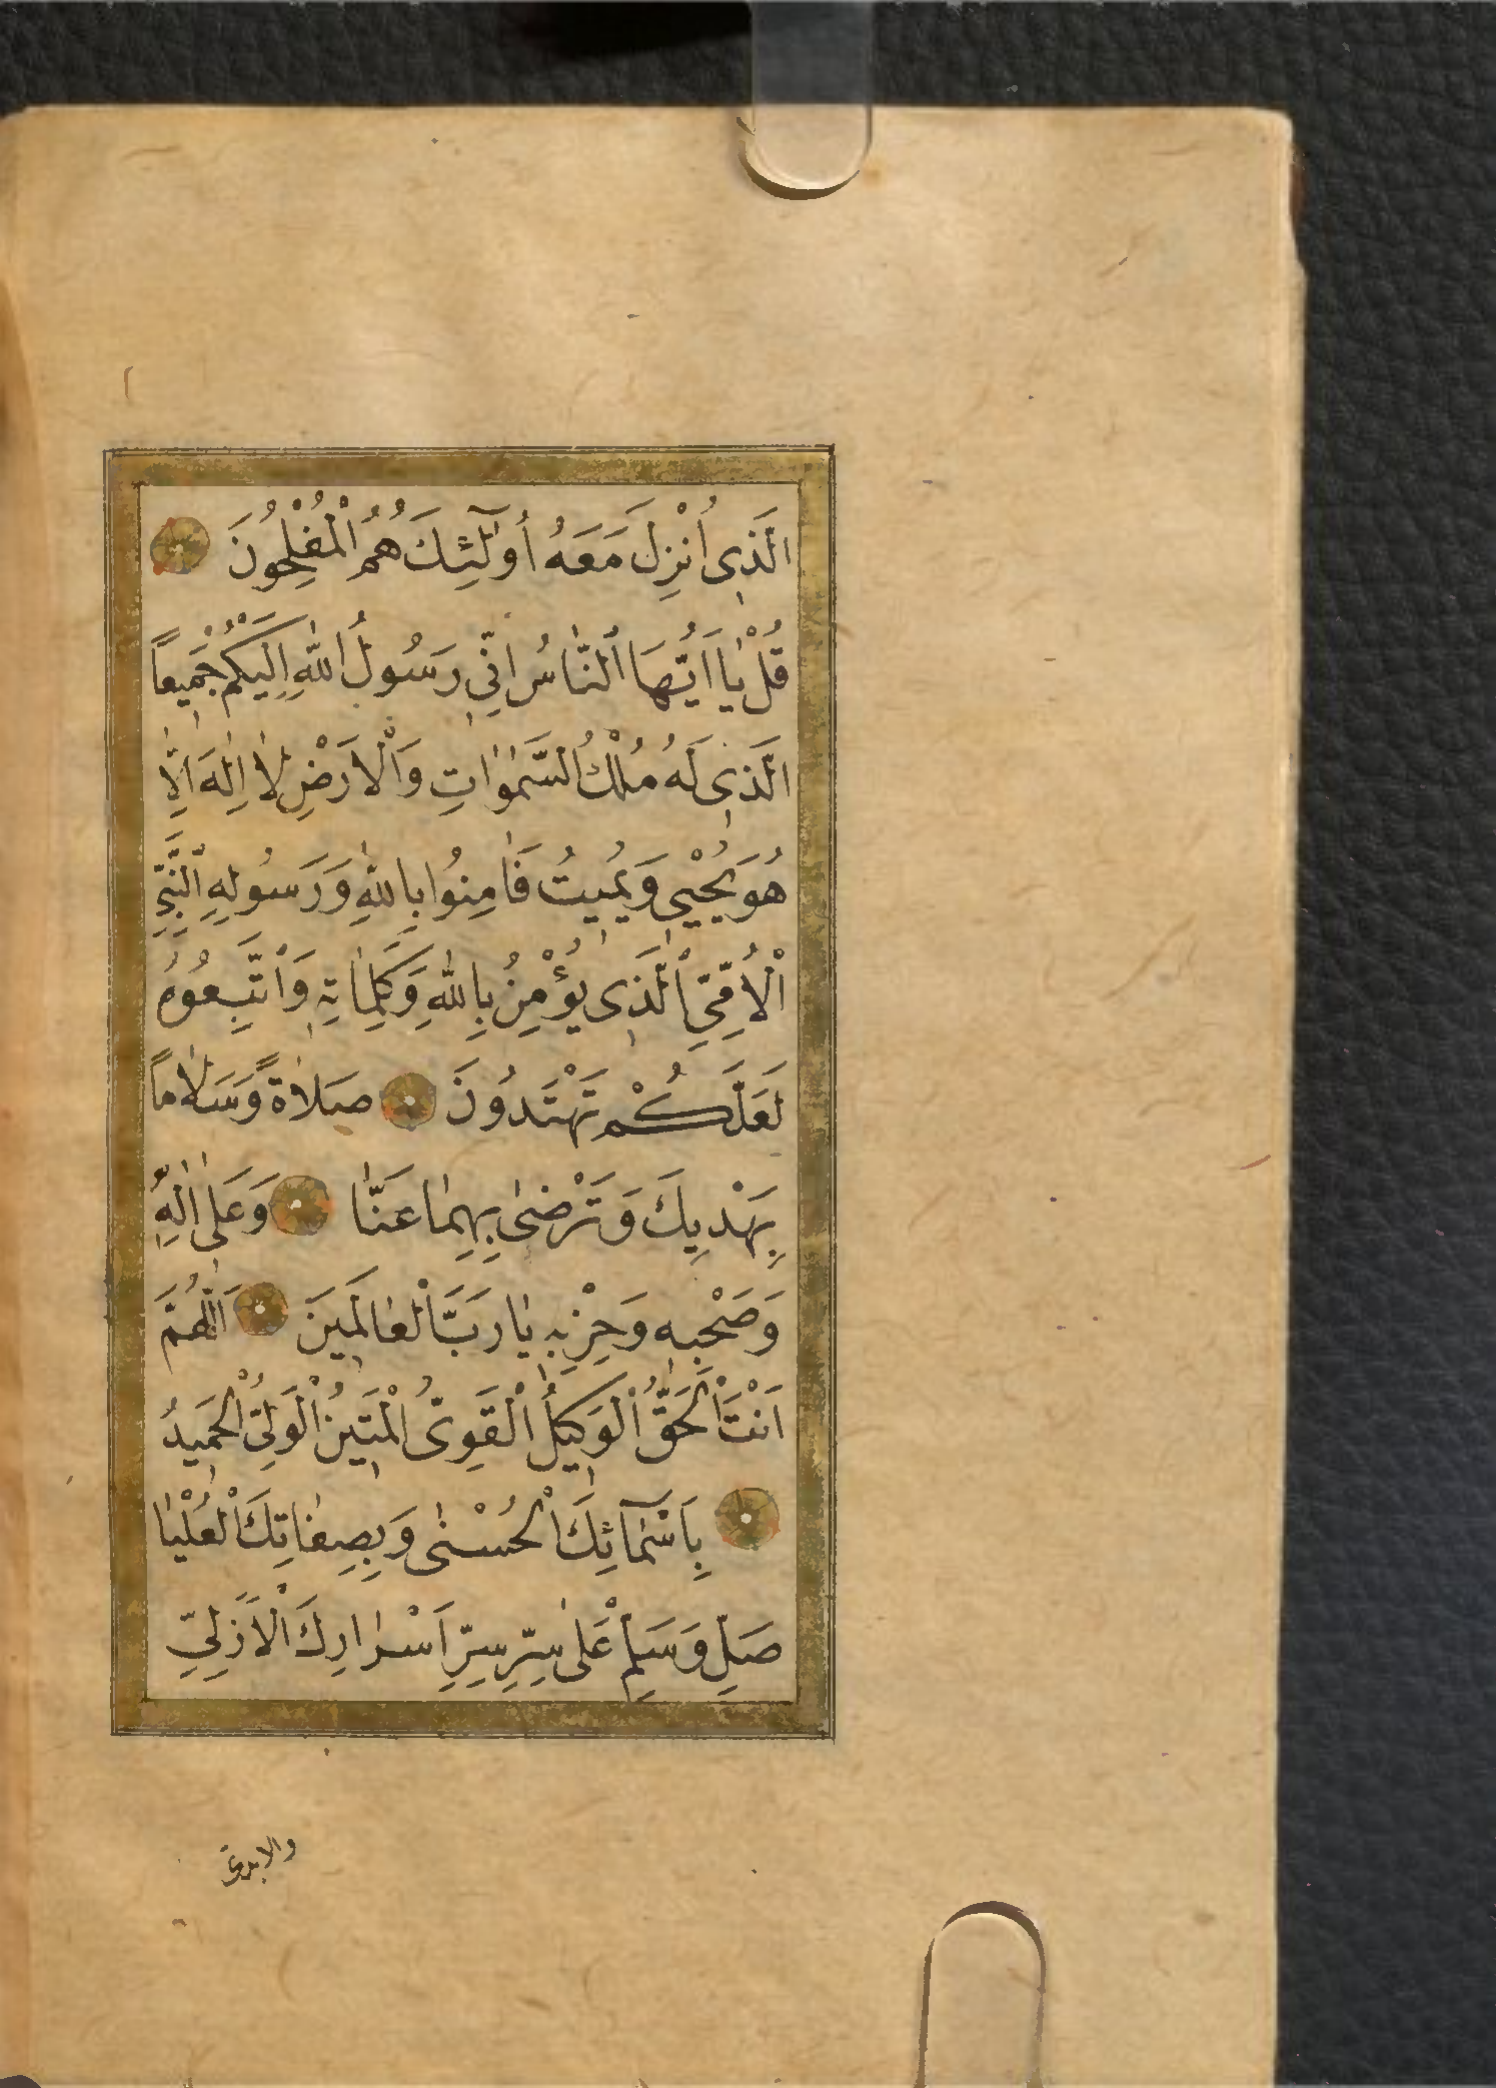 الَّذِى أُنْزِلَ مَعَهُ أُولٰٓئِكَ هُمُ الْمُفْلِحُونَ
قُلْ يٰا اَيُّهَا النَّاسُ اِنِّى رَسُولُ اللّٰهِ اِلَيْكُمْ جَمِيعاً
الَّذِى لَهُ مُلْكُ السَّمٰوٰاتِ وَالْاَرْضِ لٰا اِلٰهَ اِلّٰا
هُوَ يُحْيِى وَيُمِيتُ فَاٰمِنُوا بِاللّٰهِ وَرَسُولِهِ النَّبِىِّ
الْاُمِّىِّ الَّذِى يُؤْمِنُ بِاللّٰهِ وَكَلِمٰاتِهِ وَاتَّبِعُوهُ
لَعَلَّكُمْ تَهْتَدُونَ صَلاٰةً وَسَلاٰماً
بِهَدْيِكَ وَتَرْضىٰ بِهِمٰا عَنّٰا وَعَلىٰ اٰلِهِ
وَصَحْبِهِ وَحِزْبِهِ يٰا رَبَّ الْعٰالَمِينَ اَللّٰهُمَّ
اَنْتَ الْحَقُّ الْوَكِيلُ الْقَوِىُّ الْمَتِينُ الْوَلِىُّ الْحَمِيدُ
بِاَسْمٰآئِكَ الْحُسْنىٰ وَبِصِفٰاتِكَ الْعُلْيٰا
صَلِّ وَسَلِّمْ عَلىٰ سِرِّ سِرِّ اَسْرٰارِكَ الْاَزَلِىِّ